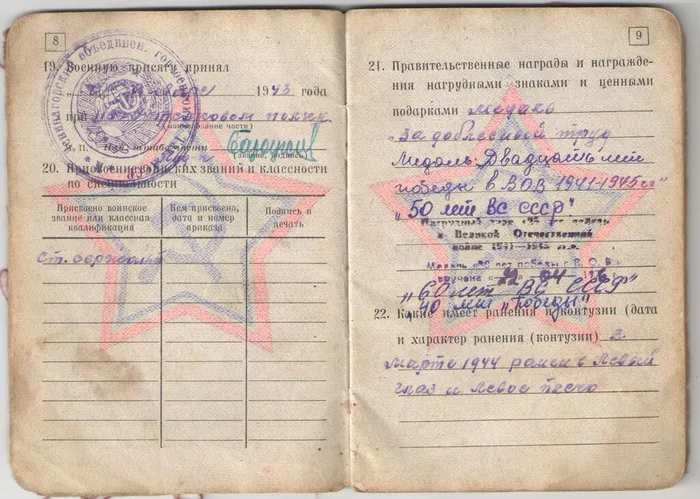 8
19. Военную присягу принял
1943 года
при стрелковом полку
(наименование части)
М. П.
(звание, подпись)
20. Присвоение воинских званий и классности
по специальности
Присвоено воинское
звание или классная
квалификация
Кем присвоено,
дата и номер
приказа
Подпись и
печать
Ст. сержант
9
21. Правительственные награды и награжде-
ния нагрудными знаками и ценными
подарками медаль
"За доблестный труд
Медаль Двадцать лет
победы в ВОВ 1941-1945гг"
"50 лет ВС СССР"
Нагрудный знак «25 лет победы
в Великой Отечественной
войне 1941—1945 гг.»
Медаль «30 лет победы в В. О. В.»
вручена «22» 04
"60 лет ВС СССР"
"40 лет "Победы"
22. Какие имеет ранения и контузии (дата
и характер ранения (контузии) в
марте 1944 ранен в левый
глаз и левое плечо